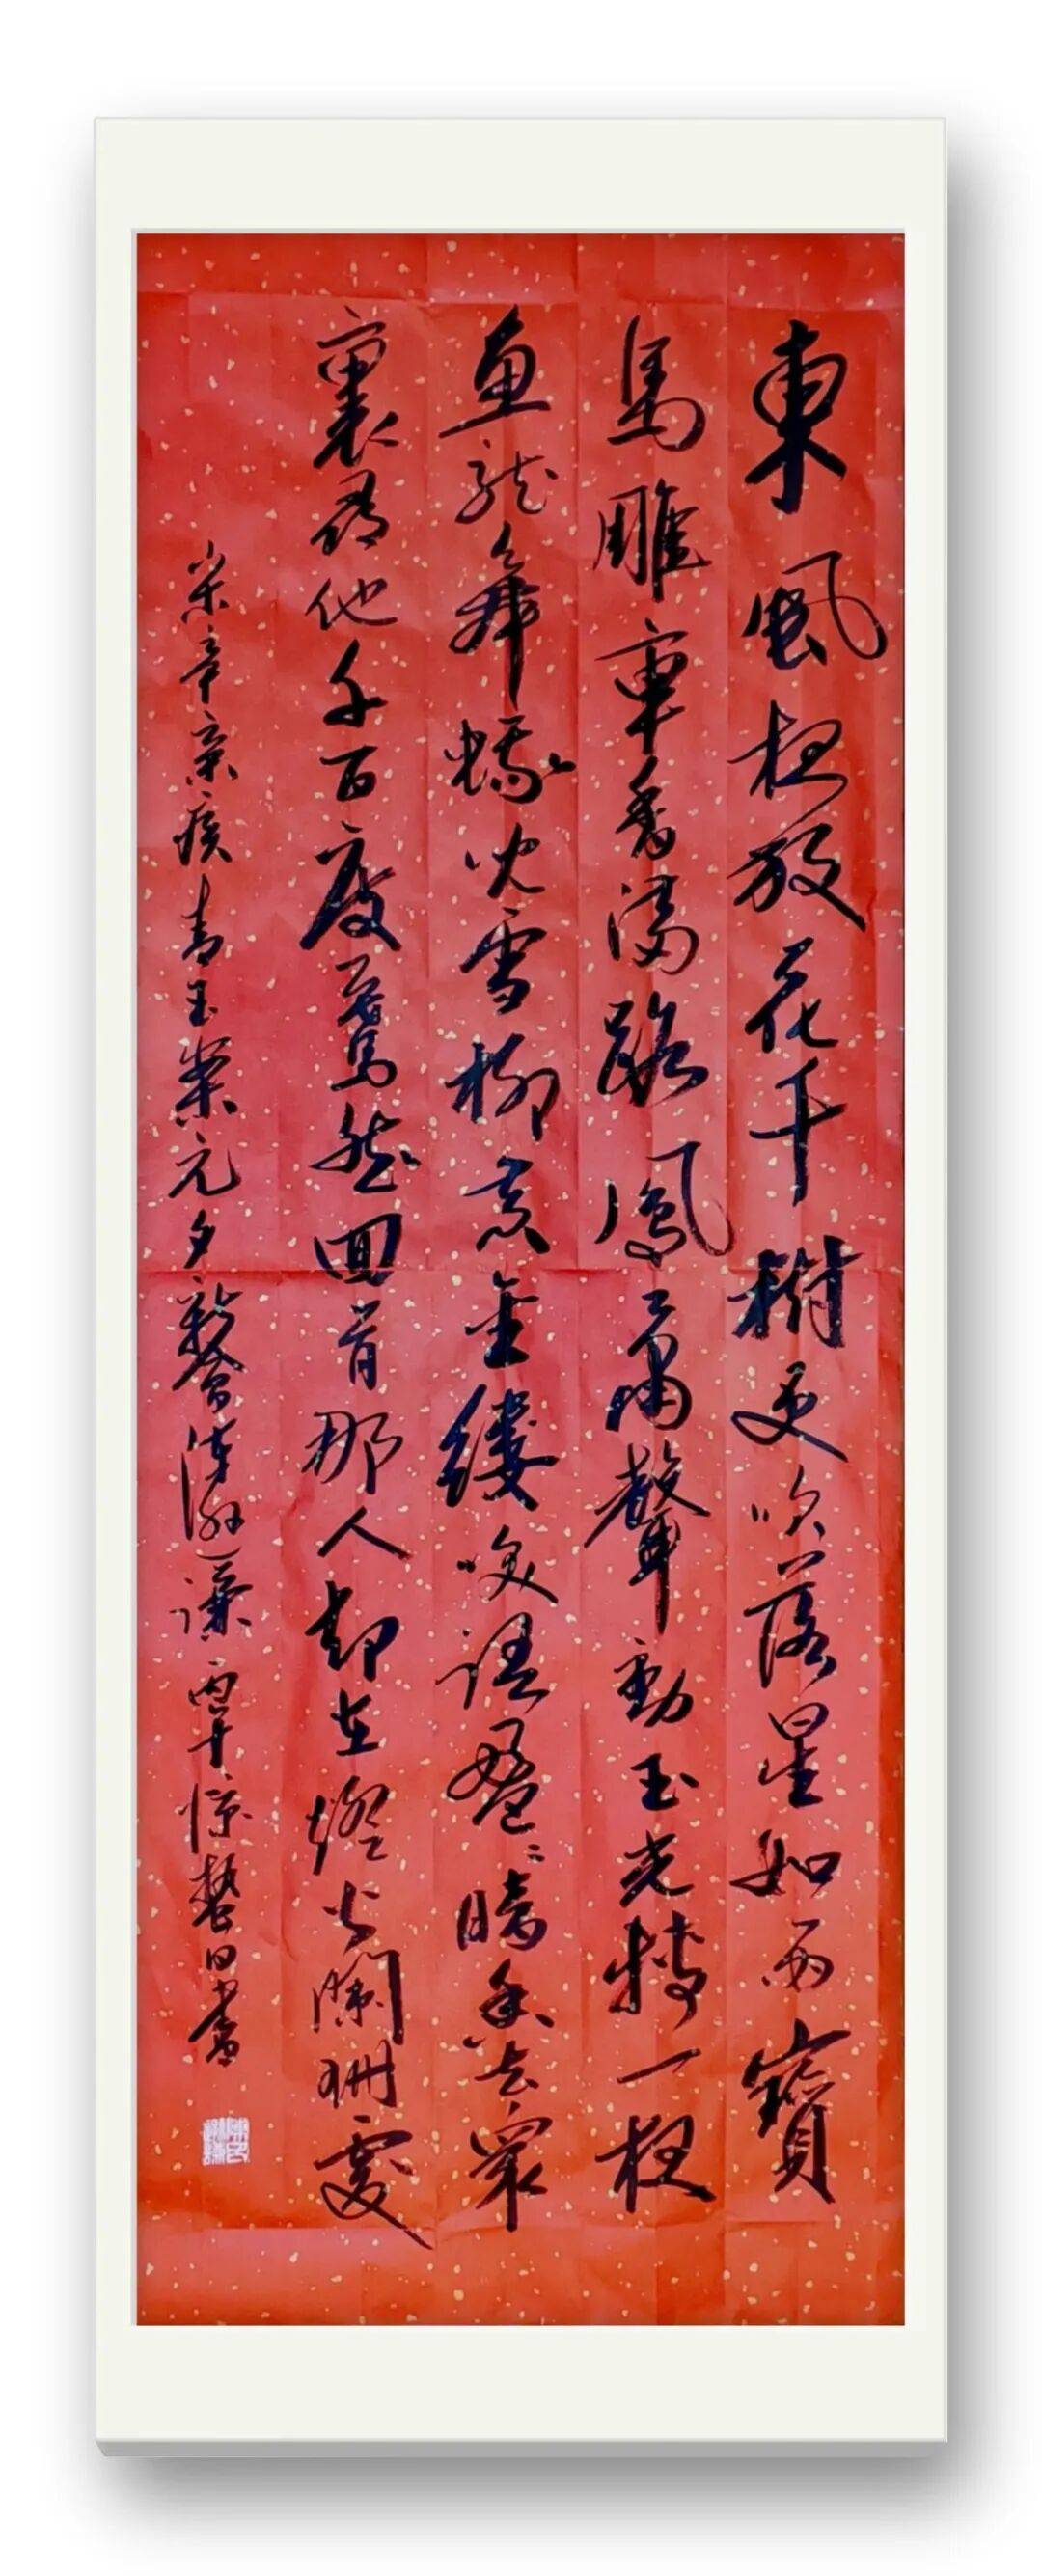 東風夜放花千樹更吹落星如雨寶
馬雕車香滿路鳳簫聲動玉光轉一夜
魚龍舞蛾兒雪柳黃金縷笑語盈盈暗香去衆
裏尋他千百度驀然回首那人却在燈火闌珊處
宋辛棄疾青玉案元夕謙丙午惊蟄日書